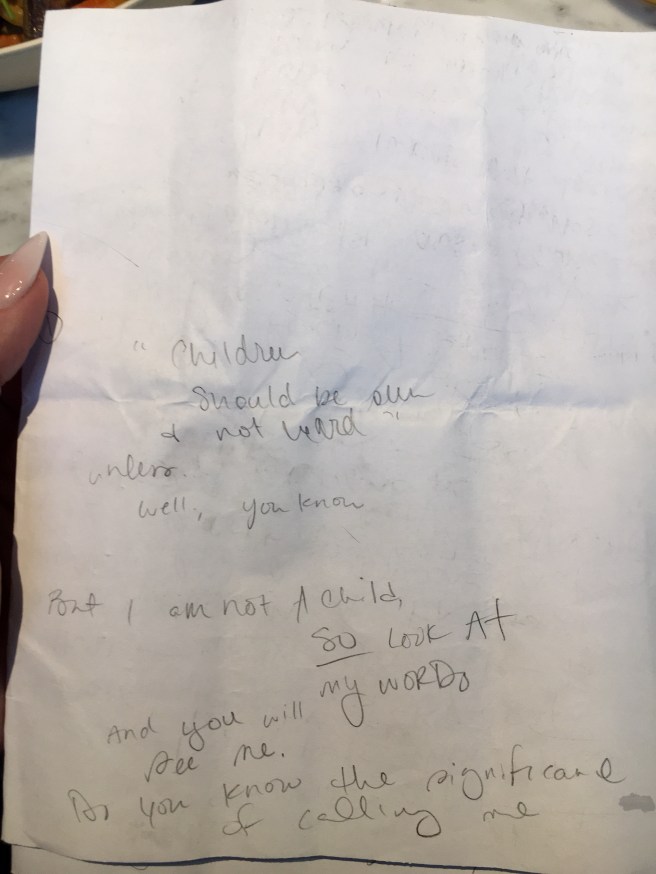 "Children
Should be seen
& not heard"
unless.
well, you know
But I am not A child,
So LOOK At
my WORDs
And you will
see me.
Do you know the significance
of calling me